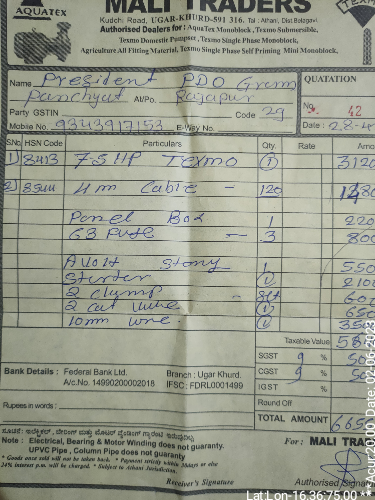 AQUATEX
MALI TRADERS
TEXMO
Kudchi Road, UGAR-KHURD-591 316. Tal : Athani, Dist: Belagavi.
Authorised Dealers for : AquaTex Monoblock, Texmo Submersible,
Texmo Domestic Pumpset, Texmo Single Phase Monoblock,
Agriculture All Fitting Material, Texmo Single Phase Self Priming Mini Monoblock.
Name President PDO Gram
QUATATION
Panchyat At/Po. Rajapur
No. 42
Party GSTIN Code 29
Mobile No. 9343917153 E-Way No.
Date : 2.8-4
SNo HSN Code Particulars Qty. Rate Amo
1) 8413 7.5 HP Texmo 1 3120
2) 8544 4 m Cable - 120
Panel Box 1 220
63 Fuse - 3 800
1 550
Starter 1 2100
2 clymp - 600
2 650
10mm wire 1 350
Taxable Value
SGST 9 % 50
Bank Details : Federal Bank Ltd. Branch : Ugar Khurd.
CGST 9 % 50
A/c.No. 14990200002018 IFSC : FDRL0001499
IGST %
Round Off
Rupees in words :
TOTAL AMOUNT 665
Note : Electrical, Bearing & Motor Winding does not guaranty.
UPVC Pipe, Column Pipe does not guaranty.
For : MALI TRA
* Goods once sold will not be taken back. * Payment strictly within 30days or else
24% interest p.m. will be charged. * Subject to Athani Jurisdiction.
Receiver's Signature
Authorised Signa
Lat Lon-16.36:75.00